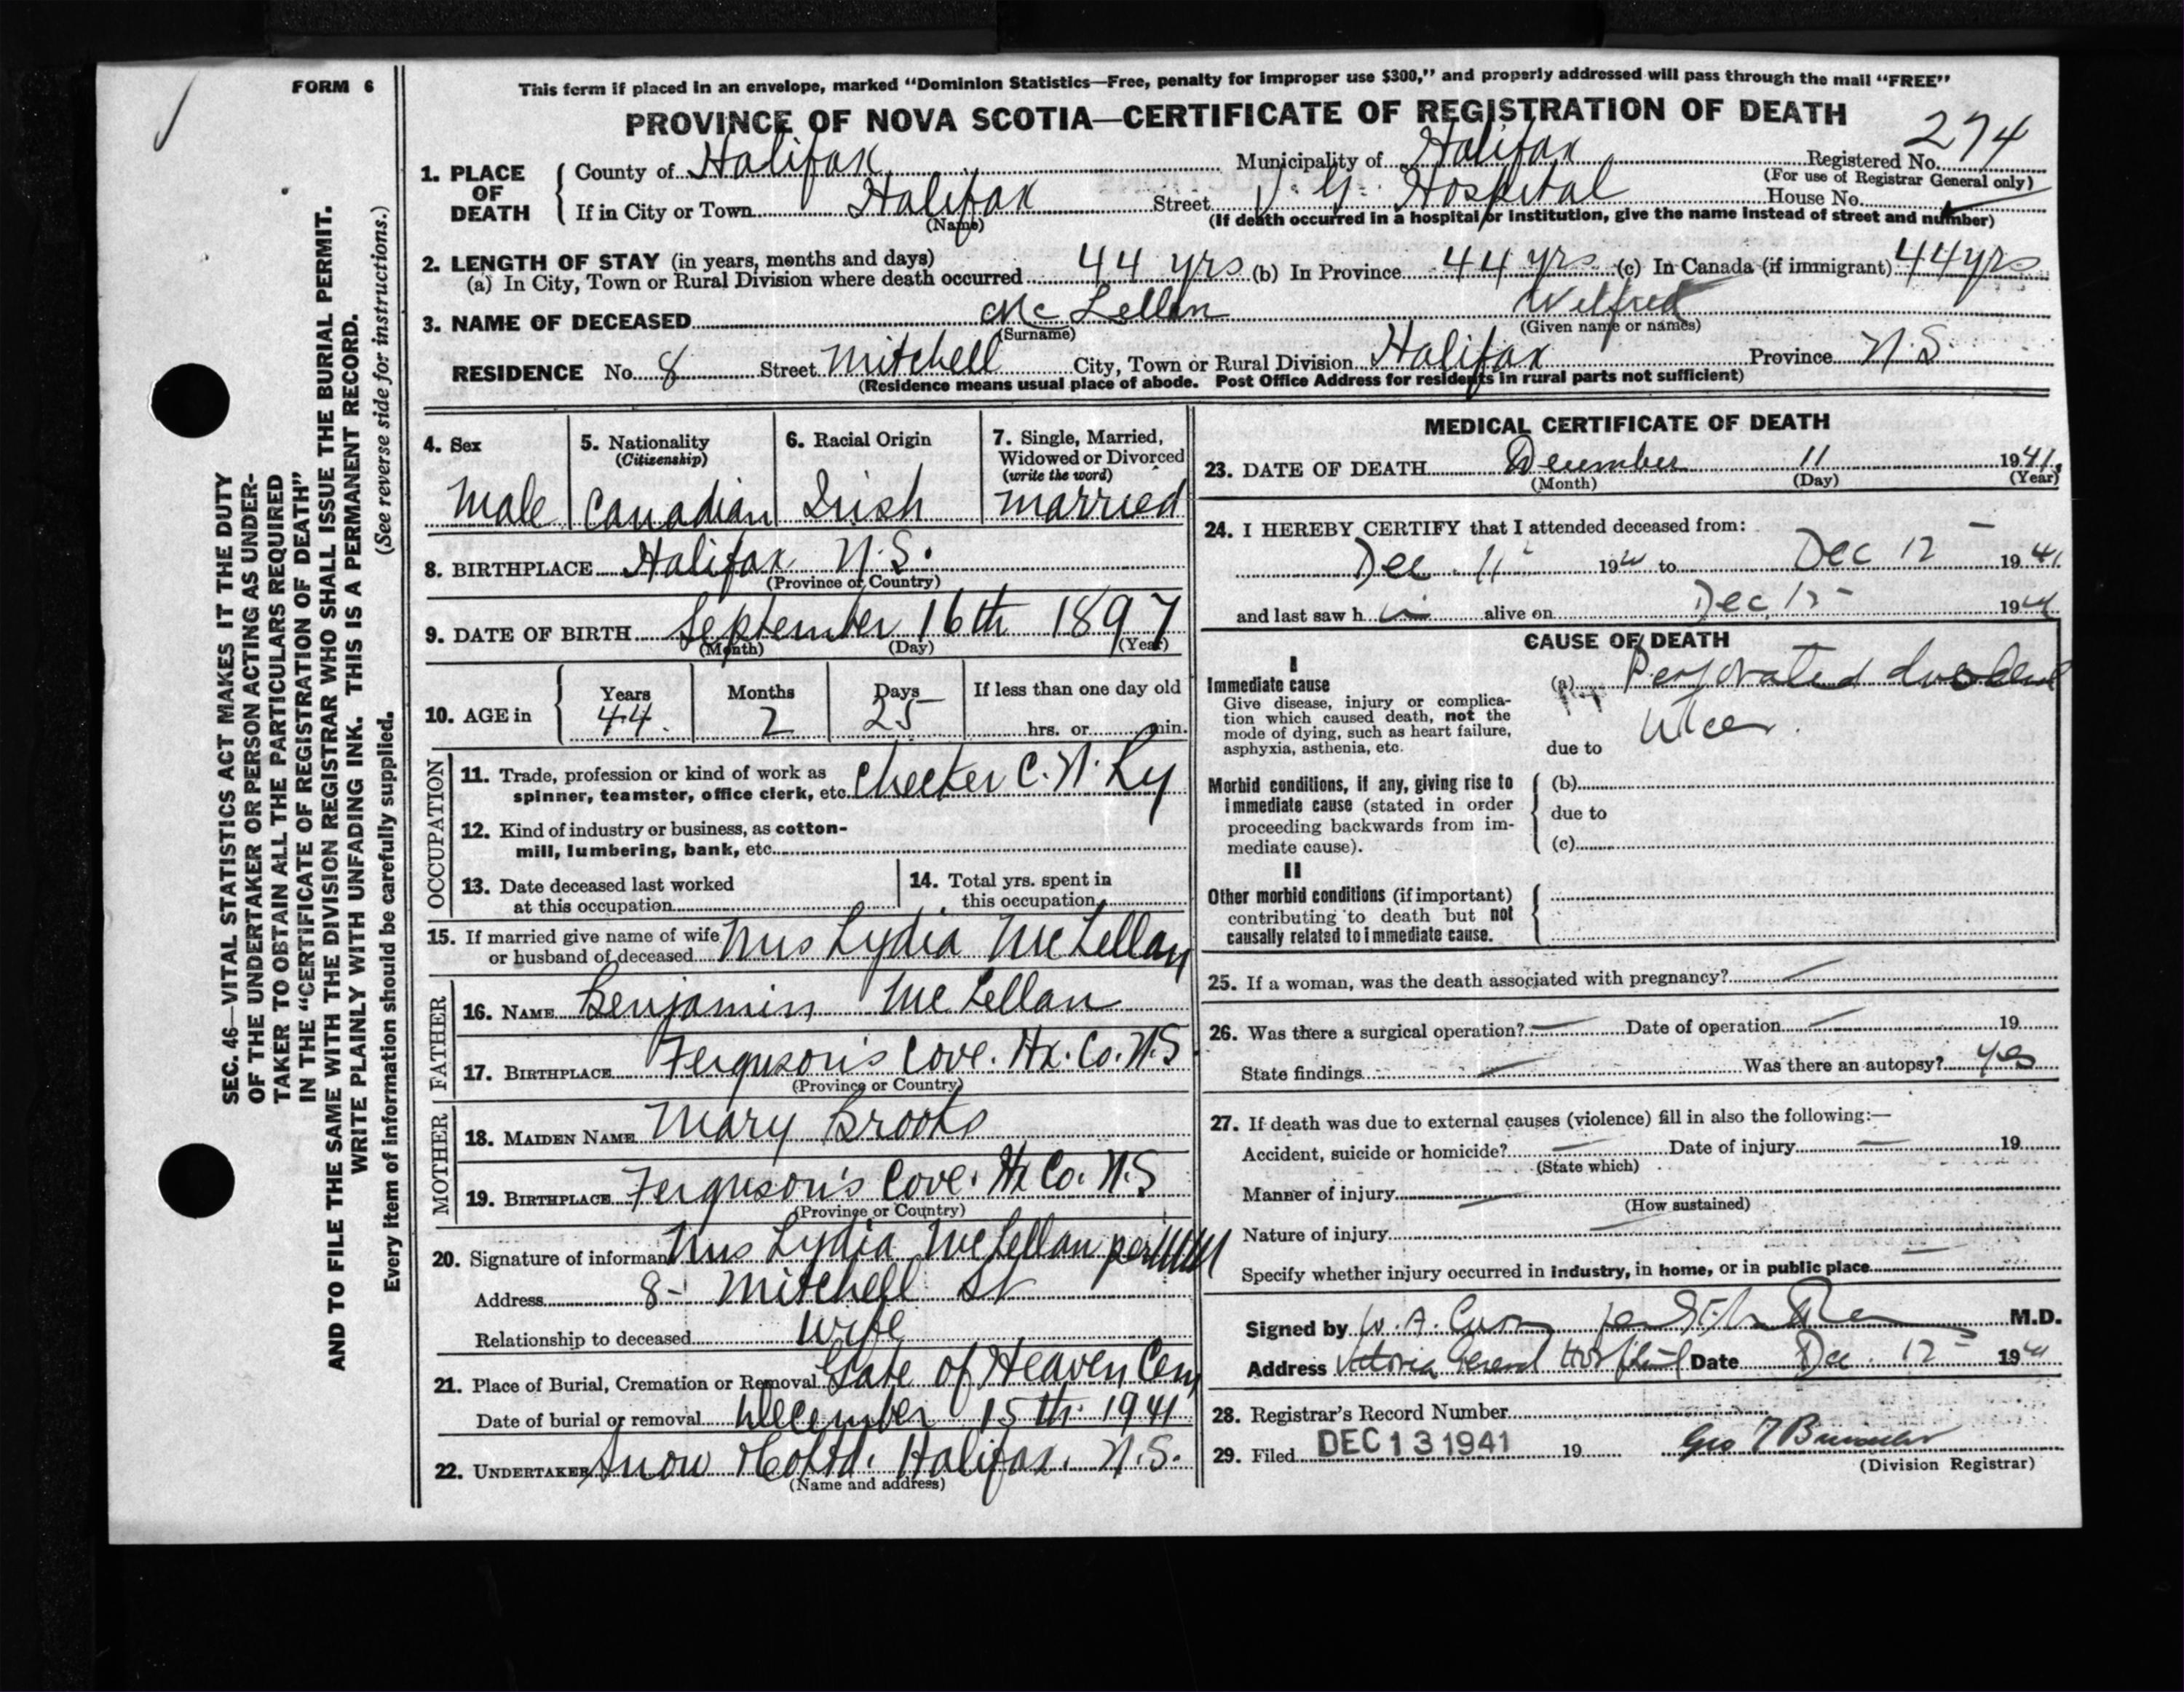 FORM 6
This form if placed in an envelope, marked “Dominion Statistics—Free, penalty for improper use $300,” and properly addressed will pass through the mail “FREE”
PROVINCE OF NOVA SCOTIA—CERTIFICATE OF REGISTRATION OF DEATH
274
1. PLACE OF DEATH { County of Halifax Municipality of Halifax Registered No.
(For use of Registrar General only)
If in City or Town Halifax Street V. G. Hospital House No.
(Name) (If death occurred in a hospital or institution, give the name instead of street and number)
2. LENGTH OF STAY (in years, months and days)
(a) In City, Town or Rural Division where death occurred 44 yrs (b) In Province 44 yrs (c) In Canada (if immigrant) 44 yrs
3. NAME OF DECEASED Mc Lellan Wilfred
(Surname) (Given name or names)
RESIDENCE No. 8 Street Mitchell City, Town or Rural Division Halifax Province N.S.
(Residence means usual place of abode. Post Office Address for residents in rural parts not sufficient)
4. Sex
Male
5. Nationality
(Citizenship)
Canadian
6. Racial Origin
Irish
7. Single, Married,
Widowed or Divorced
(write the word)
married
8. BIRTHPLACE Halifax N.S.
(Province or Country)
9. DATE OF BIRTH September 16th 1897
(Month) (Day) (Year)
10. AGE in
Years Months Days If less than one day old
44 2 25 hrs. or min.
OCCUPATION
11. Trade, profession or kind of work as
spinner, teamster, office clerk, etc. Checker C. N. Ry
12. Kind of industry or business, as cotton-
mill, lumbering, bank, etc.
13. Date deceased last worked
at this occupation
14. Total yrs. spent in
this occupation
15. If married give name of wife
or husband of deceased Mrs Lydia McLellan
FATHER
16. NAME Benjamin McLellan
17. BIRTHPLACE Ferguson's Cove. Hx. Co. N.S
(Province or Country)
MOTHER
18. MAIDEN NAME Mary Brooks
19. BIRTHPLACE Ferguson's Cove. Hx Co. N.S
(Province or Country)
20. Signature of informant Mrs Lydia McLellan per
Address 8- Mitchell St
Relationship to deceased wife
21. Place of Burial, Cremation or Removal Gate of Heaven Cem
Date of burial or removal December 15th 1941
22. UNDERTAKER Snow & Co Ltd. Halifax. N.S.
(Name and address)
MEDICAL CERTIFICATE OF DEATH
23. DATE OF DEATH December 11 1941.
(Month) (Day) (Year)
24. I HEREBY CERTIFY that I attended deceased from:
Dec 11 1941 to Dec 12 1941
and last saw h im alive on Dec 12 1941
CAUSE OF DEATH
I
Immediate cause
Give disease, injury or complica-
tion which caused death, not the
mode of dying, such as heart failure,
asphyxia, asthenia, etc.
(a) Perforated duodenal
ulcer.
due to
Morbid conditions, if any, giving rise to
immediate cause (stated in order
proceeding backwards from im-
mediate cause).
(b)
due to
(c)
II
Other morbid conditions (if important)
contributing to death but not
causally related to immediate cause.
25. If a woman, was the death associated with pregnancy? —
26. Was there a surgical operation? — Date of operation — 19
State findings — Was there an autopsy? yes
27. If death was due to external causes (violence) fill in also the following:—
Accident, suicide or homicide? — Date of injury — 19
(State which)
Manner of injury —
(How sustained)
Nature of injury —
Specify whether injury occurred in industry, in home, or in public place —
Signed by W. A. M.D.
Address Victoria General Hospital Date Dec. 12 1941
28. Registrar's Record Number
29. Filed DEC 13 1941 19 Geo
(Division Registrar)
SEC. 46—VITAL STATISTICS ACT MAKES IT THE DUTY
OF THE UNDERTAKER OR PERSON ACTING AS UNDER-
TAKER TO OBTAIN ALL THE PARTICULARS REQUIRED
IN THE “CERTIFICATE OF REGISTRATION OF DEATH”
AND TO FILE THE SAME WITH THE DIVISION REGISTRAR WHO SHALL ISSUE THE BURIAL PERMIT.
WRITE PLAINLY WITH UNFADING INK. THIS IS A PERMANENT RECORD.
(See reverse side for instructions.)
Every item of information should be carefully supplied.